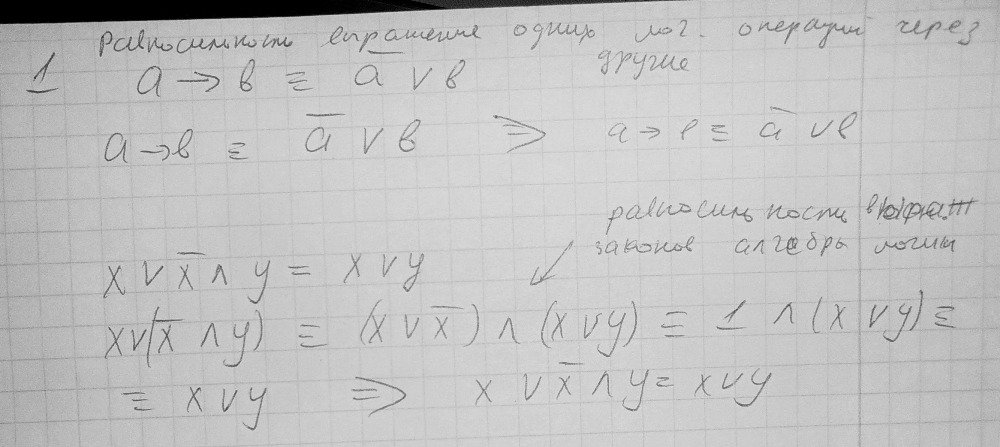 Равносильность выражение одних лог. операций через
другие
1 a → b ≡ a̅ ∨ b
a → b ≡ a̅ ∨ b ⇒ a → b ≡ a̅ ∨ b
равносильности выраж
законов алгебры логики
x ∨ x̅ ∧ y = x ∨ y
x ∨ (x̅ ∧ y) ≡ (x ∨ x̅) ∧ (x ∨ y) ≡ 1 ∧ (x ∨ y) ≡
≡ x ∨ y ⇒ x ∨ x̅ ∧ y = x ∨ y